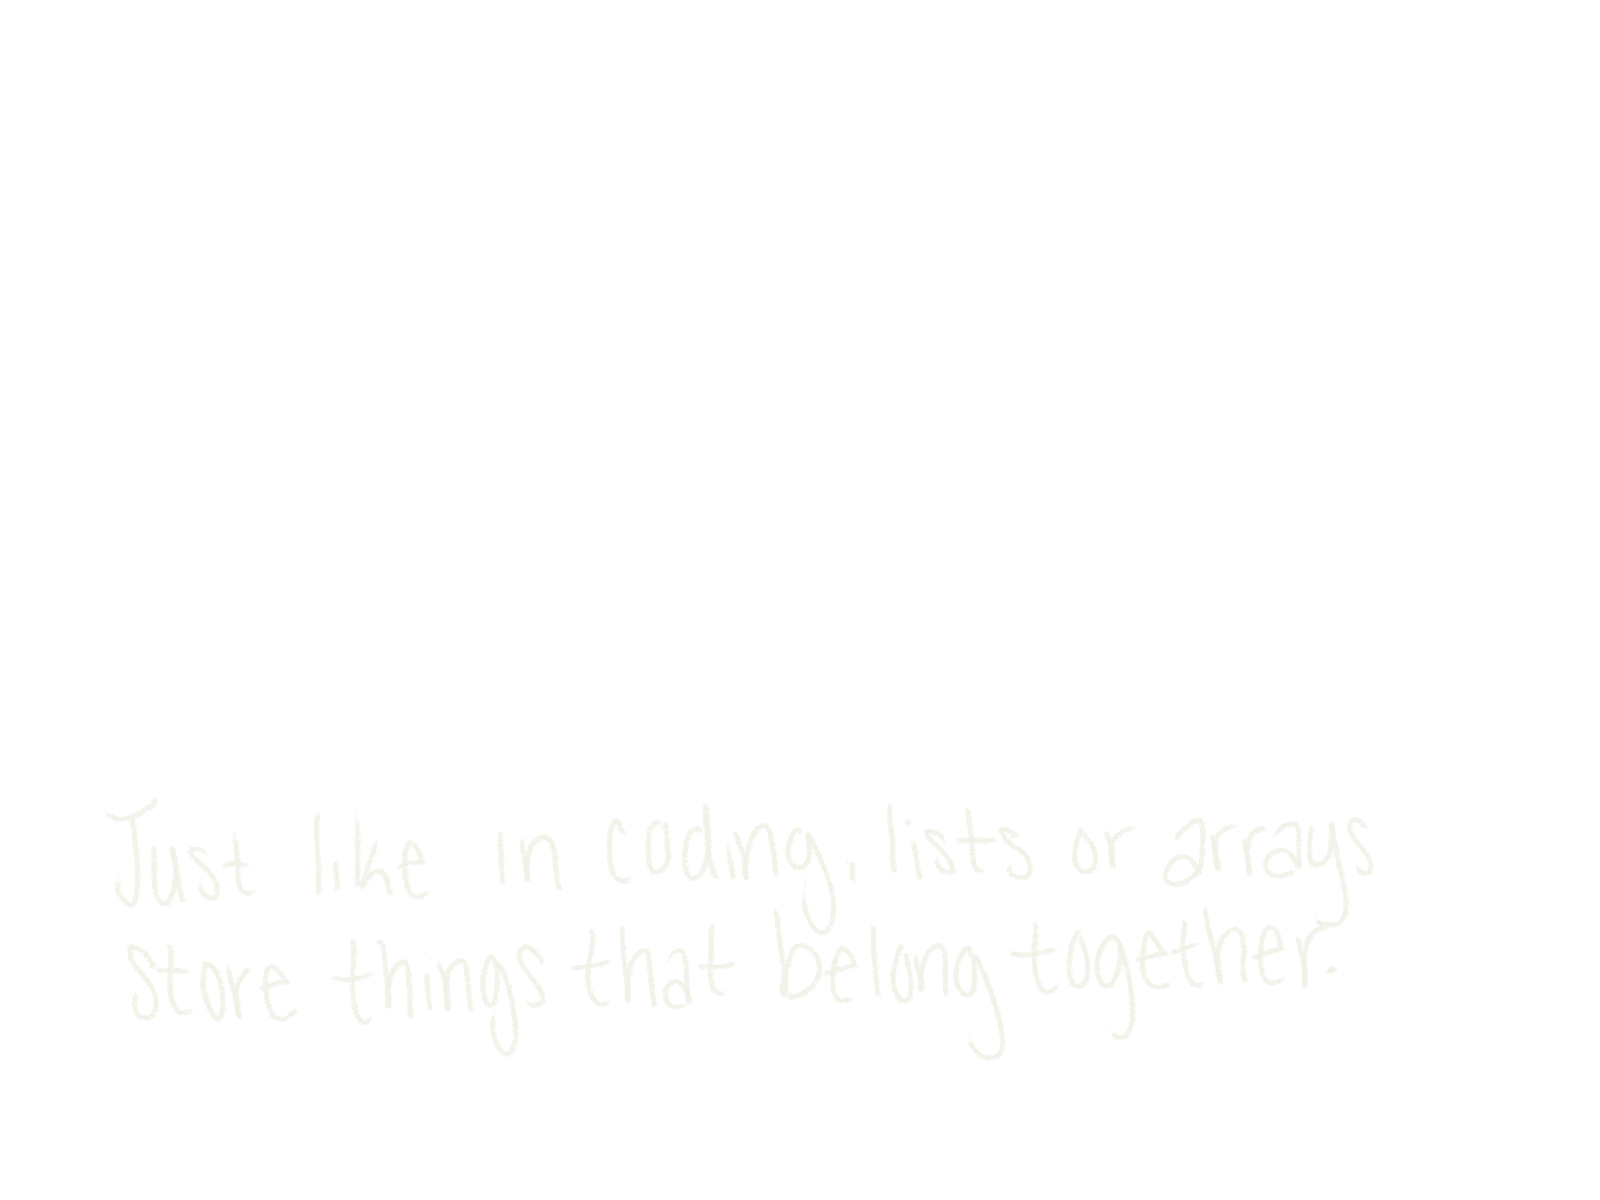 Just like in coding, lists or arrays
store things that belong together.